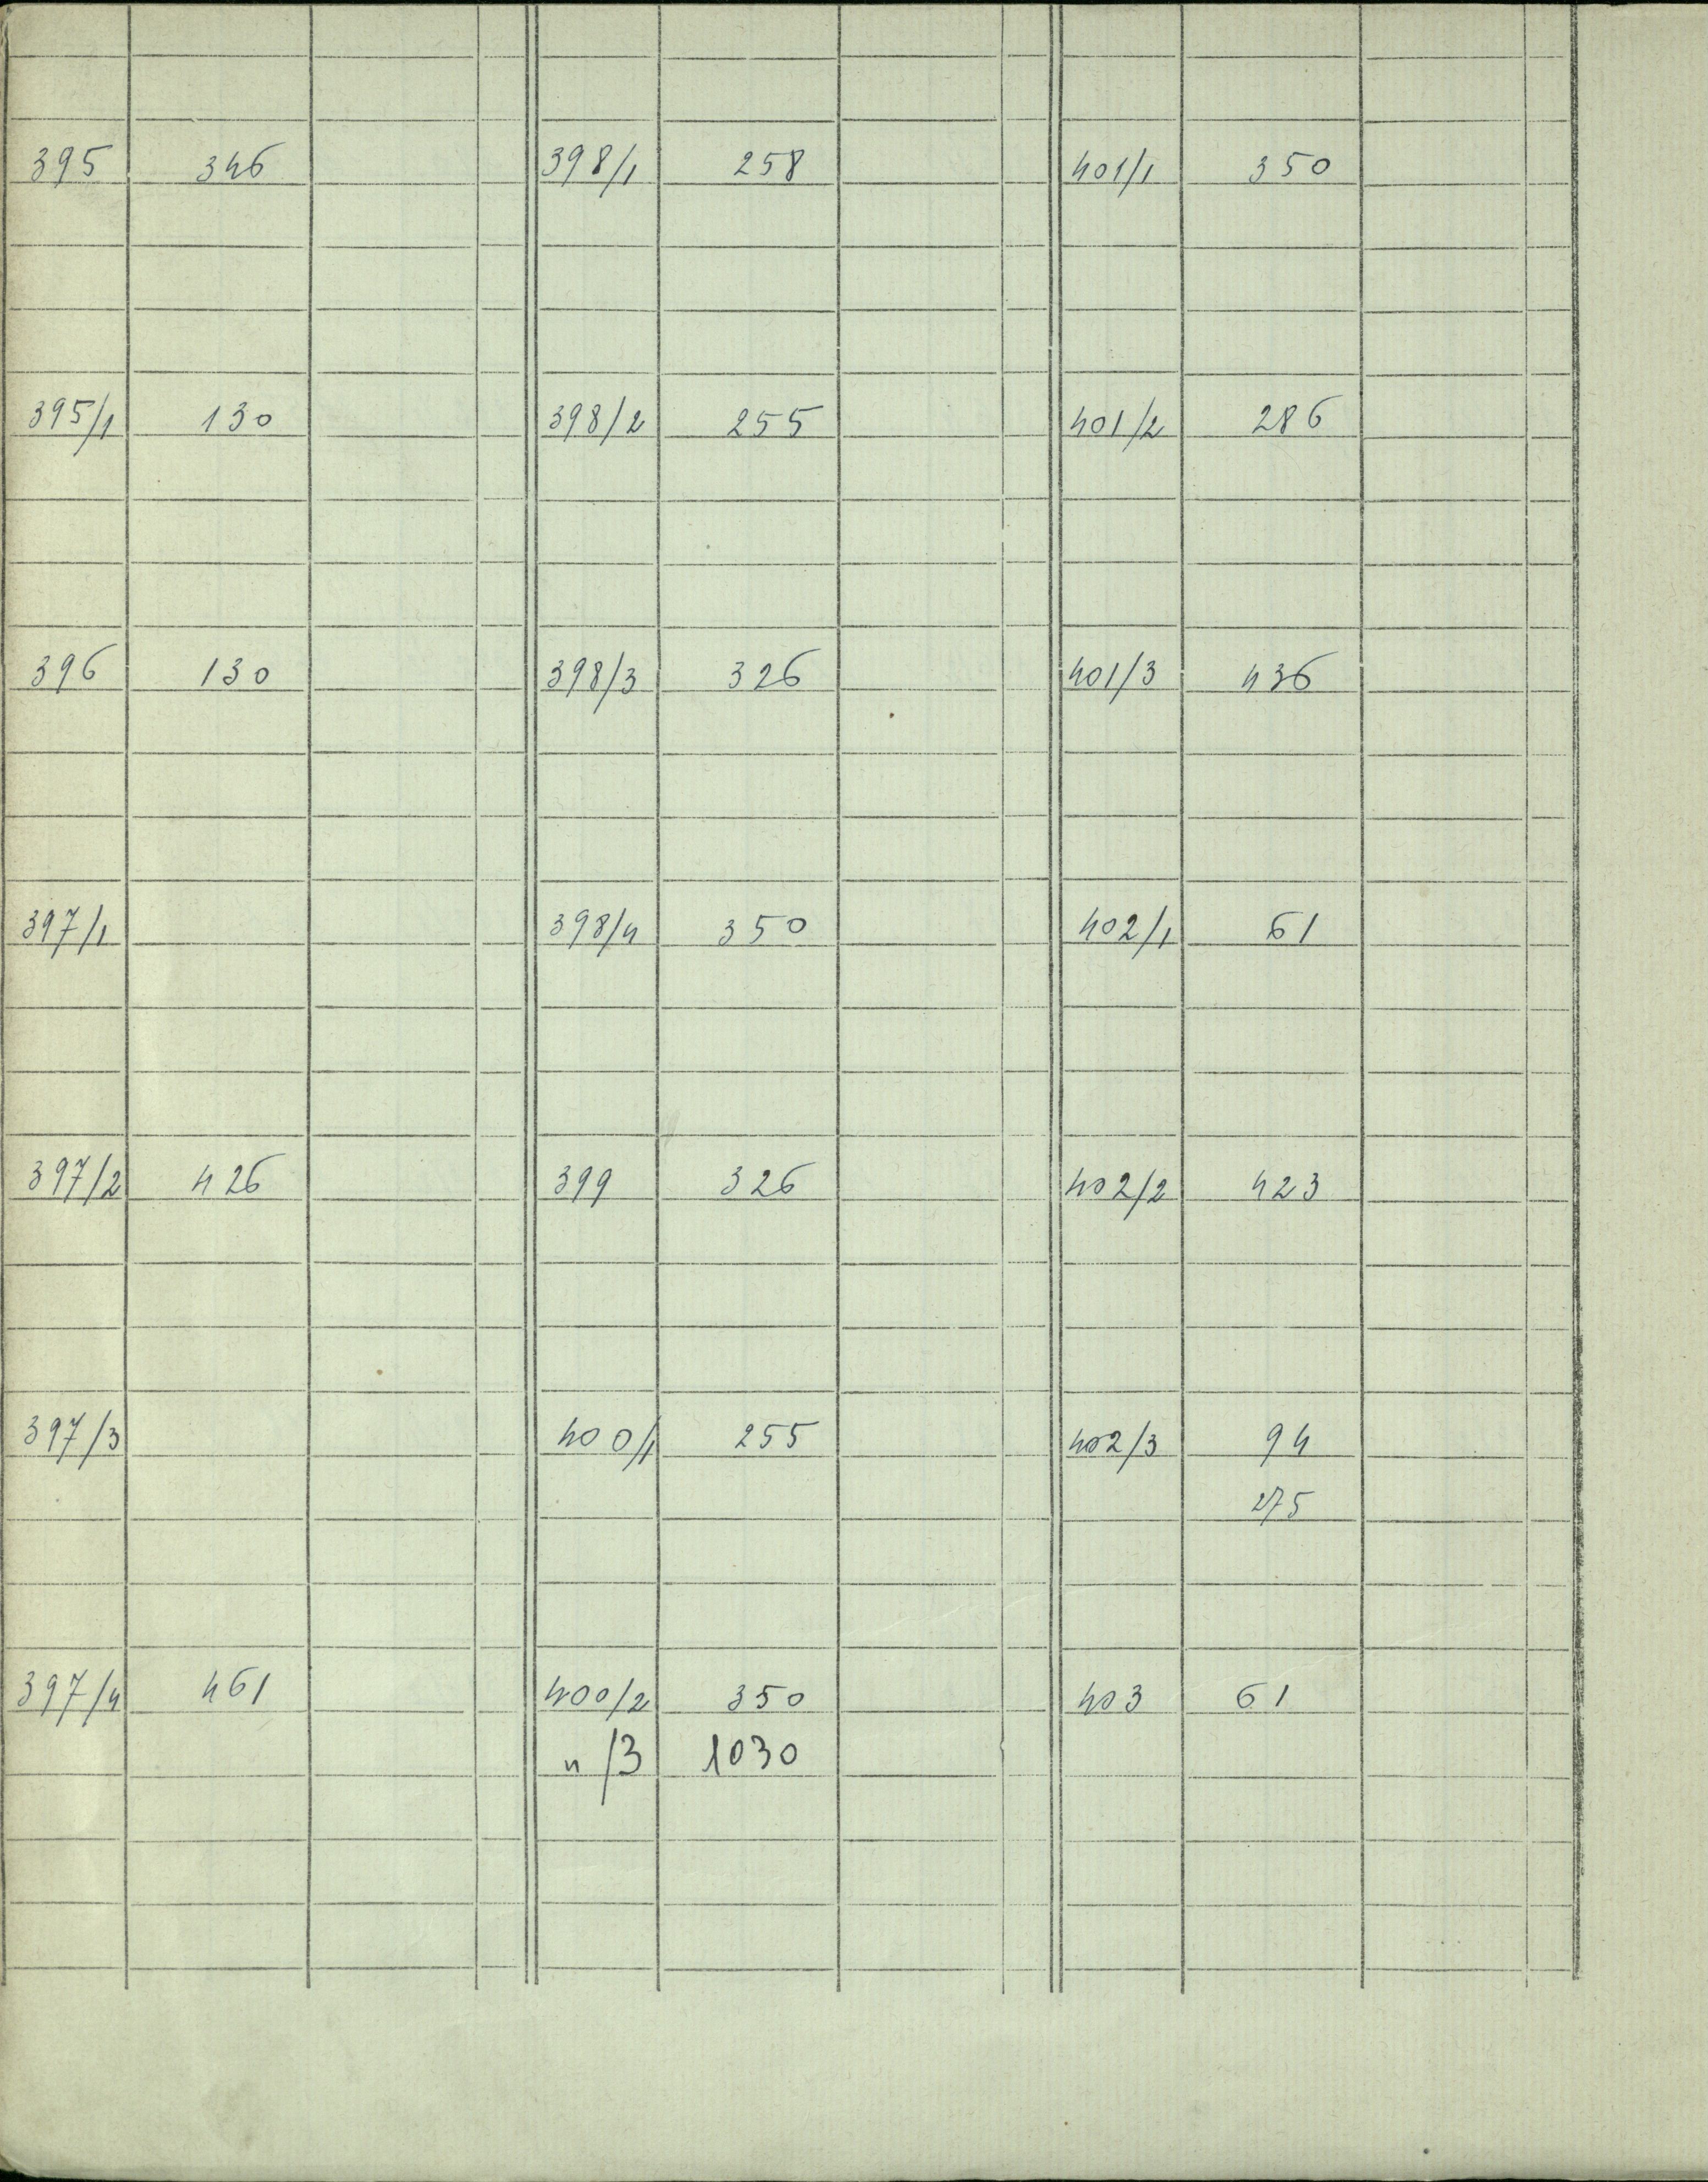 395 346 398/1 258 401/1 350
395/1 130 398/2 255 401/2 286
396 130 398/3 326 401/3 436
397/1 398/4 350 402/1 61
397/2 426 399 326 402/2 423
397/3 400/1 255 402/3 94
275
397/4 461 400/2 350 403 61
" /3 1030